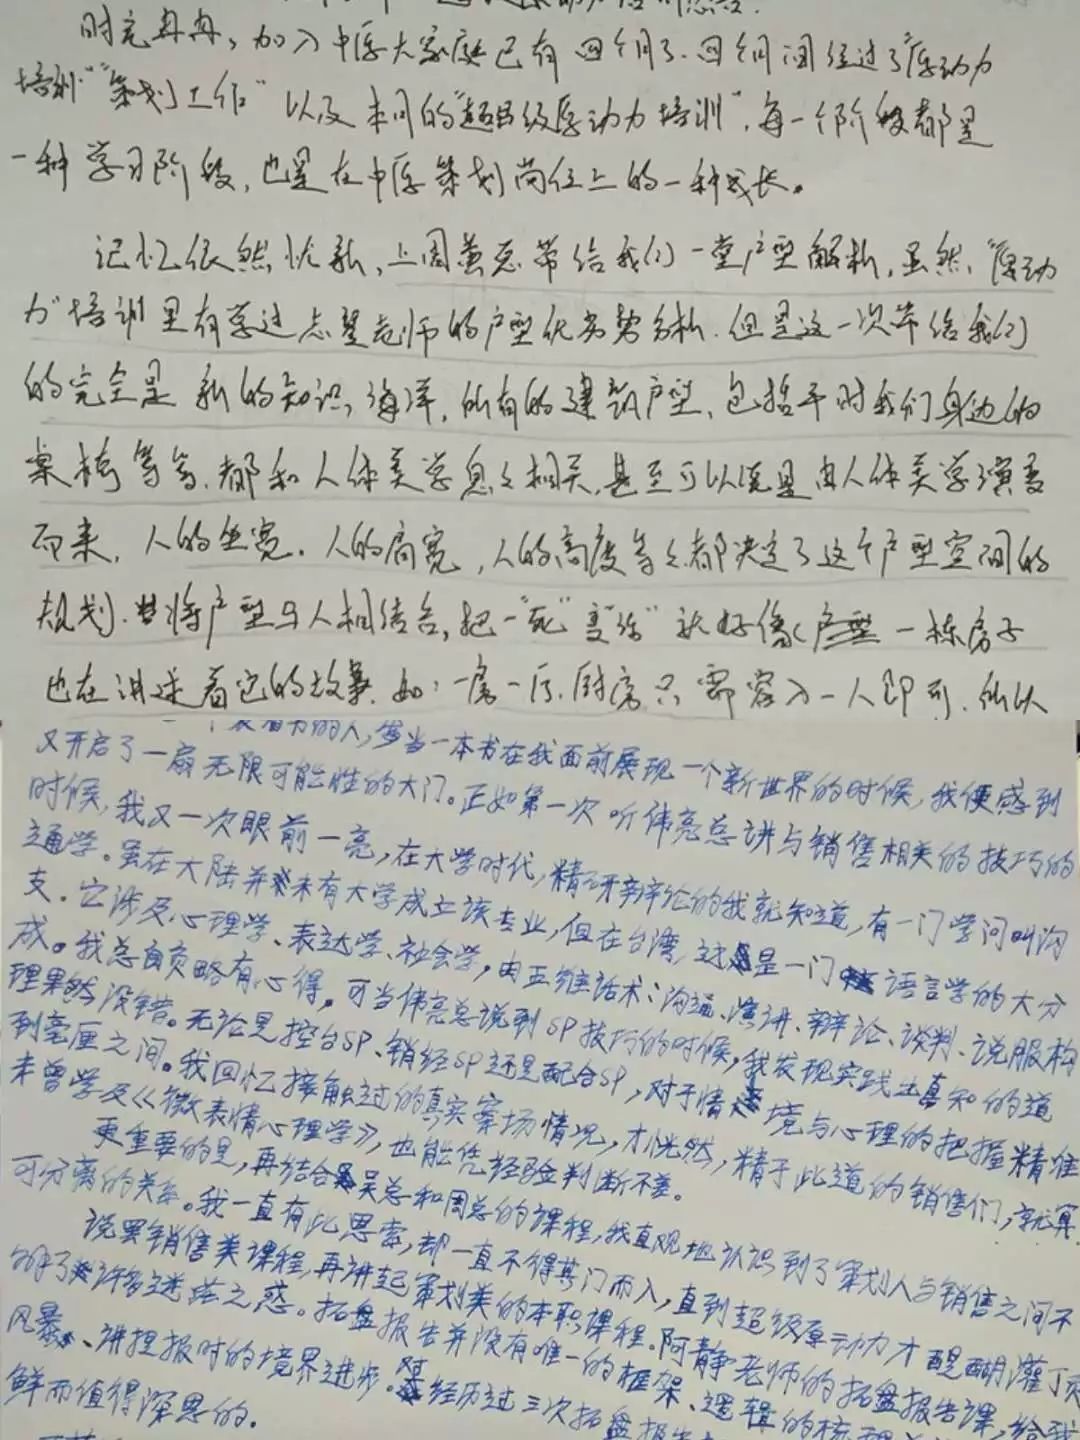 时光冉冉，加入中原大家庭已有四个月了。四个月间经过了"原动力
培训""策划工作"以及本月的"超级原动力培训"，每一个阶段都是
一种学习阶段，也是在中原策划岗位上的一种成长。
记忆依然犹新，上周黄总带给我们一堂户型解析，虽然，"原动
力"培训里有学过志坚老师的户型优劣势分析，但是这一次带给我们
的完全是新的知识海洋，所有的建筑户型，包括平时我们身边的
桌椅等等，都和人体美学息息相关，甚至可以说是由人体美学演变
而来，人的坐宽，人的肩宽，人的高度等等都决定了这个户型空间的
规划，将户型与人相结合，把"死"变"活"就好像户型一栋房子
也在讲述着它的故事，如：一房一厅，厨房只需容入一人即可，所以
的人，每当一本书在我面前展现一个新世界的时候，我便感到
又开启了一扇无限可能性的大门。正如第一次听伟亮总讲与销售相关的技巧的
时候，我又一次眼前一亮，在大学时代，精研辩论的我就知道，有一门学问叫沟
通学。虽在大陆并未有大学成立该专业，但在台湾，这是一门语言学的大分
支。它涉及心理学、表达学、社会学，由五维话术：沟通、演讲、辩论、谈判、说服构
成。我总自负略有心得。可当伟亮总说到SP技巧的时候，我发现实践出真知的道
理果然没错。无论是控台SP、销经SP还是配合SP，对于情境与心理的把握精准
到毫厘之间。我回忆接触过的真实案场情况，才恍然，精于此道的销售们，就算
未曾学及《微表情心理学》，也能凭经验判断不差。
更重要的是，再结合吴总和周总的课程，我直观地认识到了策划人与销售之间不
可分离的关系。我一直有此思索，却一直不得其门而入，直到超级原动力才醍醐灌顶
解了许多迷茫之惑。
说罢销售类课程，再讲起策划类的本职课程。阿静老师的拓盘报告课，给我
风暴、讲提报时的境界进步。拓盘报告并没有唯一的框架、逻辑的梳理
鲜而值得深思的。对经历过三次拓盘报告